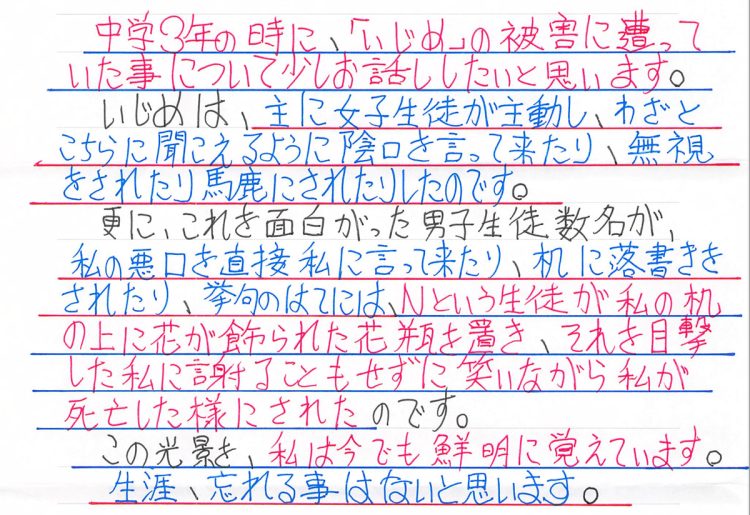 中学3年の時に、「いじめ」の被害に遭って
いた事について少しお話ししたいと思います。
いじめは、主に女子生徒が主動し、わざと
こちらに聞こえるように陰口を言って来たり、無視
をされたり馬鹿にされたりしたのです。
更に、これを面白がった男子生徒数名が、
私の悪口を直接私に言って来たり、机に落書きを
されたり、挙句のはてには、Nという生徒が私の机
の上に花が飾られた花瓶を置き、それを目撃
した私に謝ることもせずに笑いながら私が
死亡した様にされたのです。
この光景を、私は今でも鮮明に覚えています。
生涯、忘れる事はないと思います。